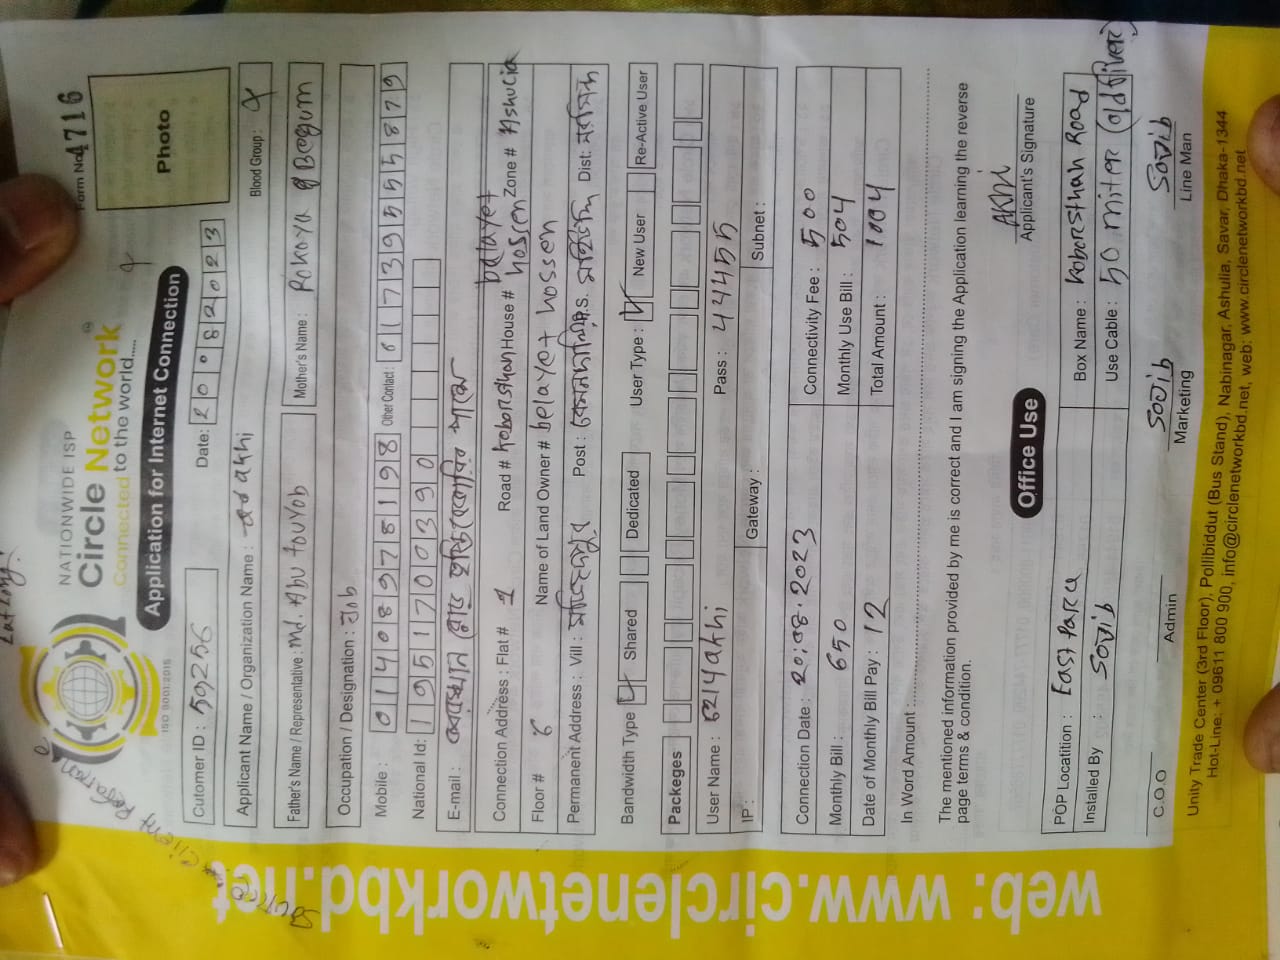 Form No 4716
NATIONWIDE ISP
Circle Network
Connected to the world.....
ISO 9001:2015
Photo
Application for Internet Connection
Cutomer ID : 59256 Date: 20082023
Applicant Name / Organization Name : akhi Blood Group:
Father's Name / Representative : Md. Abu touyob Mother's Name : Rokeya Begum
Occupation / Designation : Job
Mobile : 01408978198 Other Contact: 01739555879
National Id: 1951700390
E-mail :
Connection Address : Flat# 1 Road # koborsthan House # belayet hossen Zone # Ashulia
Floor # 6 Name of Land Owner # belayet hossen
Permanent Address : Vill : Post : P.S. Dist:
Bandwidth Type Shared Dedicated User Type : New User Re-Active User
Packeges
User Name : 6214akhi Pass : 44455
IP : Gateway : Subnet :
Connection Date : 20.08.2023 Connectivity Fee : 500
Monthly Bill : 650 Monthly Use Bill : 504
Date of Monthly Bill Pay : 12 Total Amount : 1004
In Word Amount :
The mentioned information provided by me is correct and I am signing the Application learning the reverse
page terms & condition.
AKhi
Applicant's Signature
Office Use
POP Locatition : East Para Box Name : koborsthan Road
Installed By : Sovib Use Cable : 50 miter (old fiber)
Sovib Sovib
C.O.O Admin Marketing Line Man
Unity Trade Center (3rd Floor), Pollibiddut (Bus Stand), Nabinagar, Ashulia, Savar, Dhaka-1344
Hot-Line: + 09611 800 900, info@circlenetworkbd.net, web: www.circlenetworkbd.net
web: www.circlenetworkbd.net